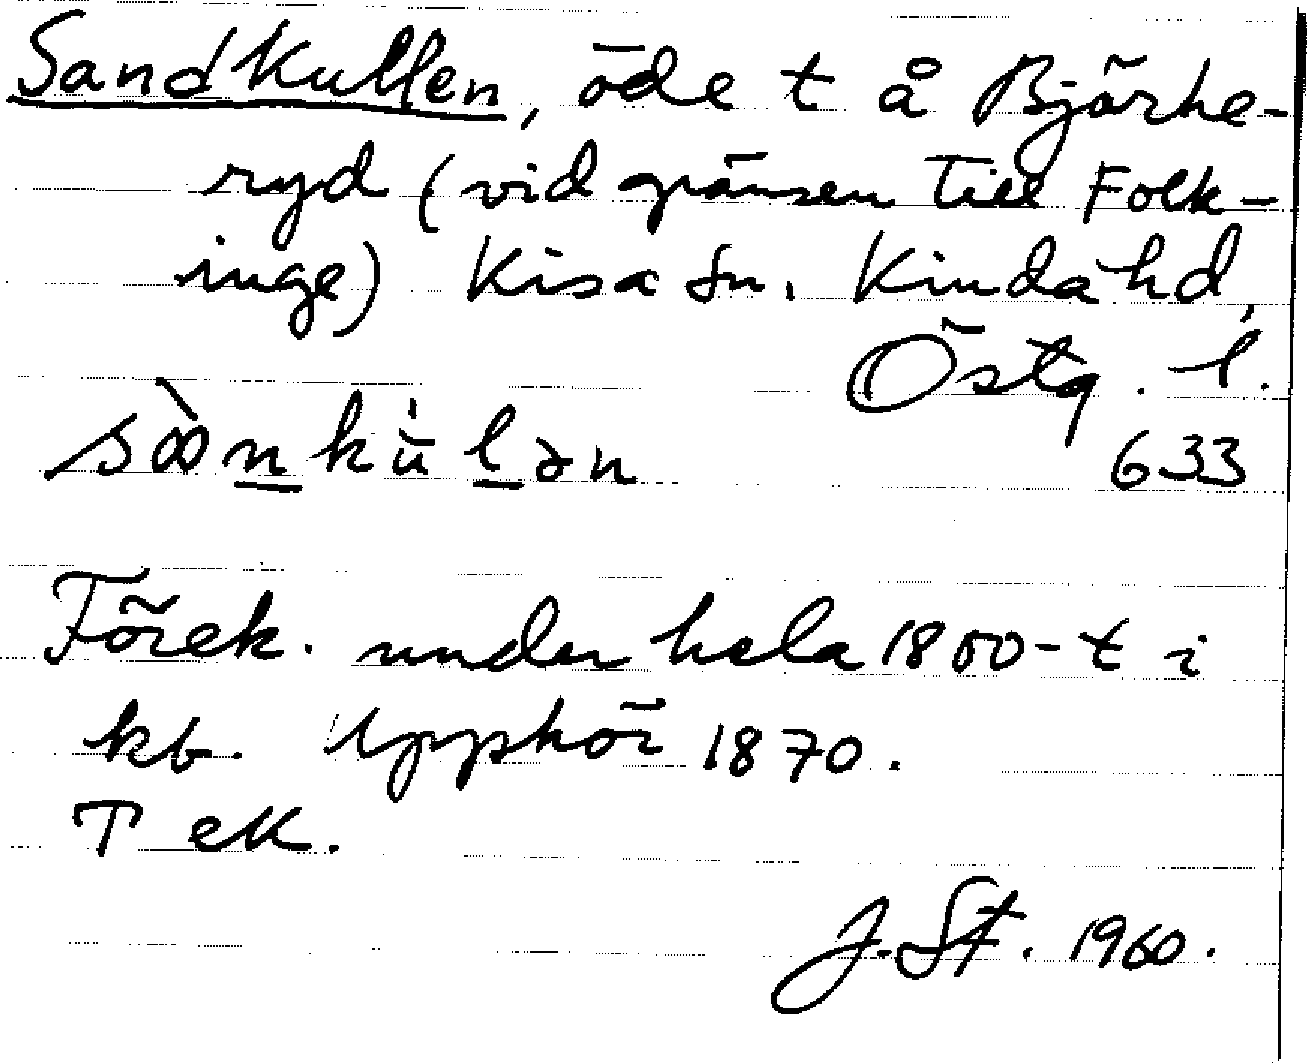 Sandkullen, öde t å Björke-
ryd (vid gränsen till Folk-
inge) Kisa sn. Kinda hd,
Östg. l.
633
Förek. under hela 1800-t i
kb. Upphör 1870.
T ek.
J. St. 1960.